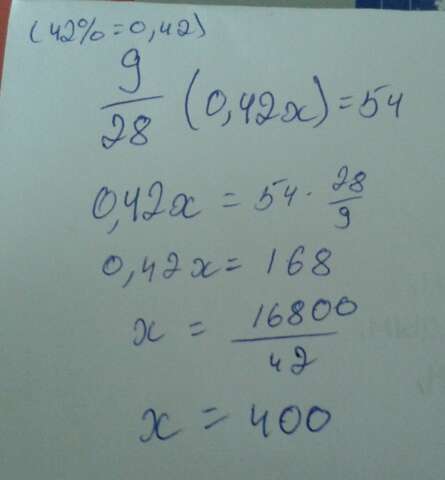 (42%=0,42)
9/28 (0,42x)=54
0,42x = 54 · 28/9
0,42x = 168
x = 16800/42
x = 400